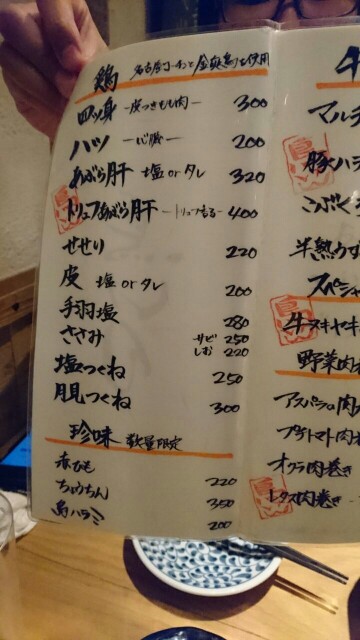 鶏 名古屋コーチンと金敬鳥を使用
四ツ身 -皮つきもも肉- 300
ハツ -心臓- 200
あぶら肝 塩 or タレ 320
トリュフあぶら肝 -トリュフ香る- 400
せせり 220
皮 塩 or タレ 200
手羽塩 280
ささみ サビ 250
しお 220
塩つくね 250
月見つくね 300
珍味 数量限定
赤ひも 220
ちょうちん 350
鳥ハラミ 200
牛
マルチ
豚ハラ
こぶくろ
半熟うず
スペシャ
牛
野菜肉巻
アスパラの肉
プチトマト肉巻
オクラ肉巻き
レタス肉巻き